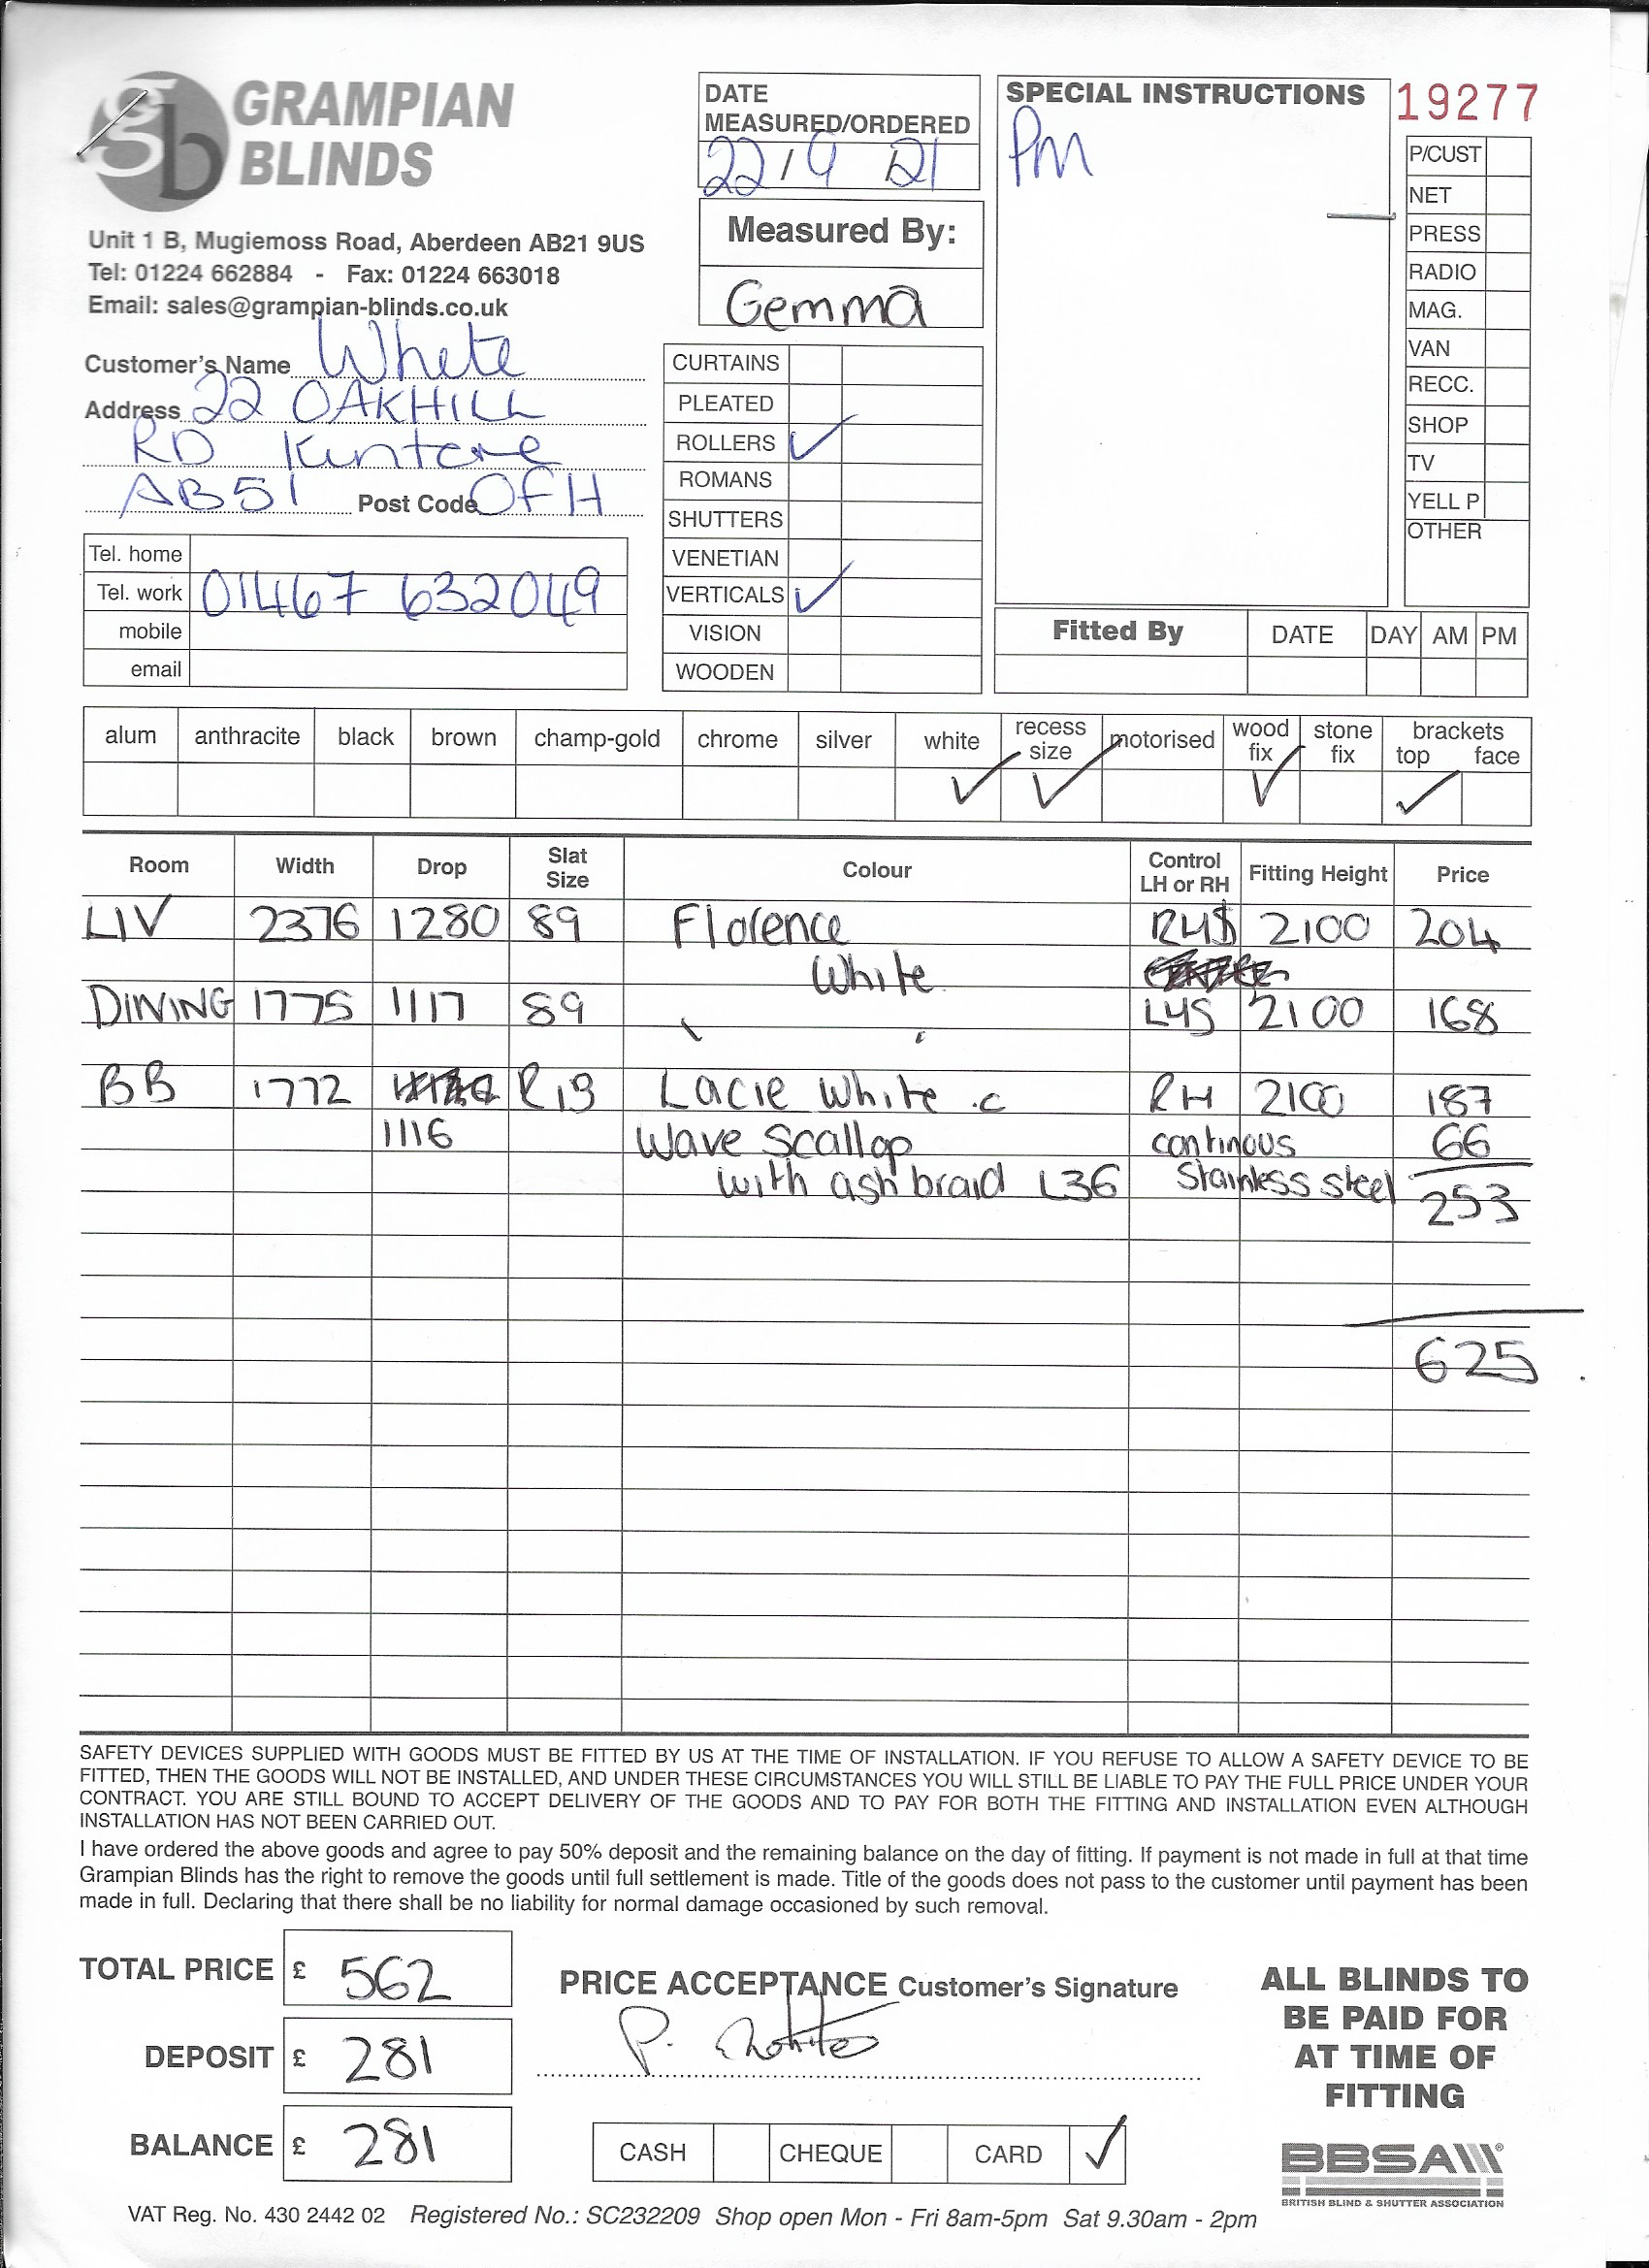 GRAMPIAN
BLINDS
Unit 1 B, Mugiemoss Road, Aberdeen AB21 9US
Tel: 01224 662884 - Fax: 01224 663018
Email: sales@grampian-blinds.co.uk
DATE
MEASURED/ORDERED
22/9 21
Measured By:
Gemma
SPECIAL INSTRUCTIONS
PM
19277
P/CUST
NET
PRESS
RADIO
MAG.
VAN
RECC.
SHOP
TV
YELL P
OTHER
Customer's Name White
Address 22 OAKHILL
RD Kintore
AB51 Post Code 0FH
Tel. home
Tel. work 01467 632049
mobile
email
CURTAINS
PLEATED
ROLLERS ✓
ROMANS
SHUTTERS
VENETIAN
VERTICALS ✓
VISION
WOODEN
Fitted By DATE DAY AM PM
alum anthracite black brown champ-gold chrome silver white recess size motorised wood fix stone fix brackets top face
✓ ✓ ✓ ✓
Room Width Drop Slat Size Colour Control LH or RH Fitting Height Price
LIV 2376 1280 89 Florence RHS 2100 204
White
DINING 1775 1117 89 LHS 2100 168
BB 1772 R19 Lacie White .c RH 2100 187
1116 Wave Scallop continous 66
with ash braid L36 Stainless steel 253
625
SAFETY DEVICES SUPPLIED WITH GOODS MUST BE FITTED BY US AT THE TIME OF INSTALLATION. IF YOU REFUSE TO ALLOW A SAFETY DEVICE TO BE
FITTED, THEN THE GOODS WILL NOT BE INSTALLED, AND UNDER THESE CIRCUMSTANCES YOU WILL STILL BE LIABLE TO PAY THE FULL PRICE UNDER YOUR
CONTRACT. YOU ARE STILL BOUND TO ACCEPT DELIVERY OF THE GOODS AND TO PAY FOR BOTH THE FITTING AND INSTALLATION EVEN ALTHOUGH
INSTALLATION HAS NOT BEEN CARRIED OUT.
I have ordered the above goods and agree to pay 50% deposit and the remaining balance on the day of fitting. If payment is not made in full at that time
Grampian Blinds has the right to remove the goods until full settlement is made. Title of the goods does not pass to the customer until payment has been
made in full. Declaring that there shall be no liability for normal damage occasioned by such removal.
TOTAL PRICE £ 562
DEPOSIT £ 281
BALANCE £ 281
PRICE ACCEPTANCE Customer's Signature
P. White
CASH CHEQUE CARD ✓
ALL BLINDS TO
BE PAID FOR
AT TIME OF
FITTING
BBSA
BRITISH BLIND & SHUTTER ASSOCIATION
VAT Reg. No. 430 2442 02 Registered No.: SC232209 Shop open Mon - Fri 8am-5pm Sat 9.30am - 2pm